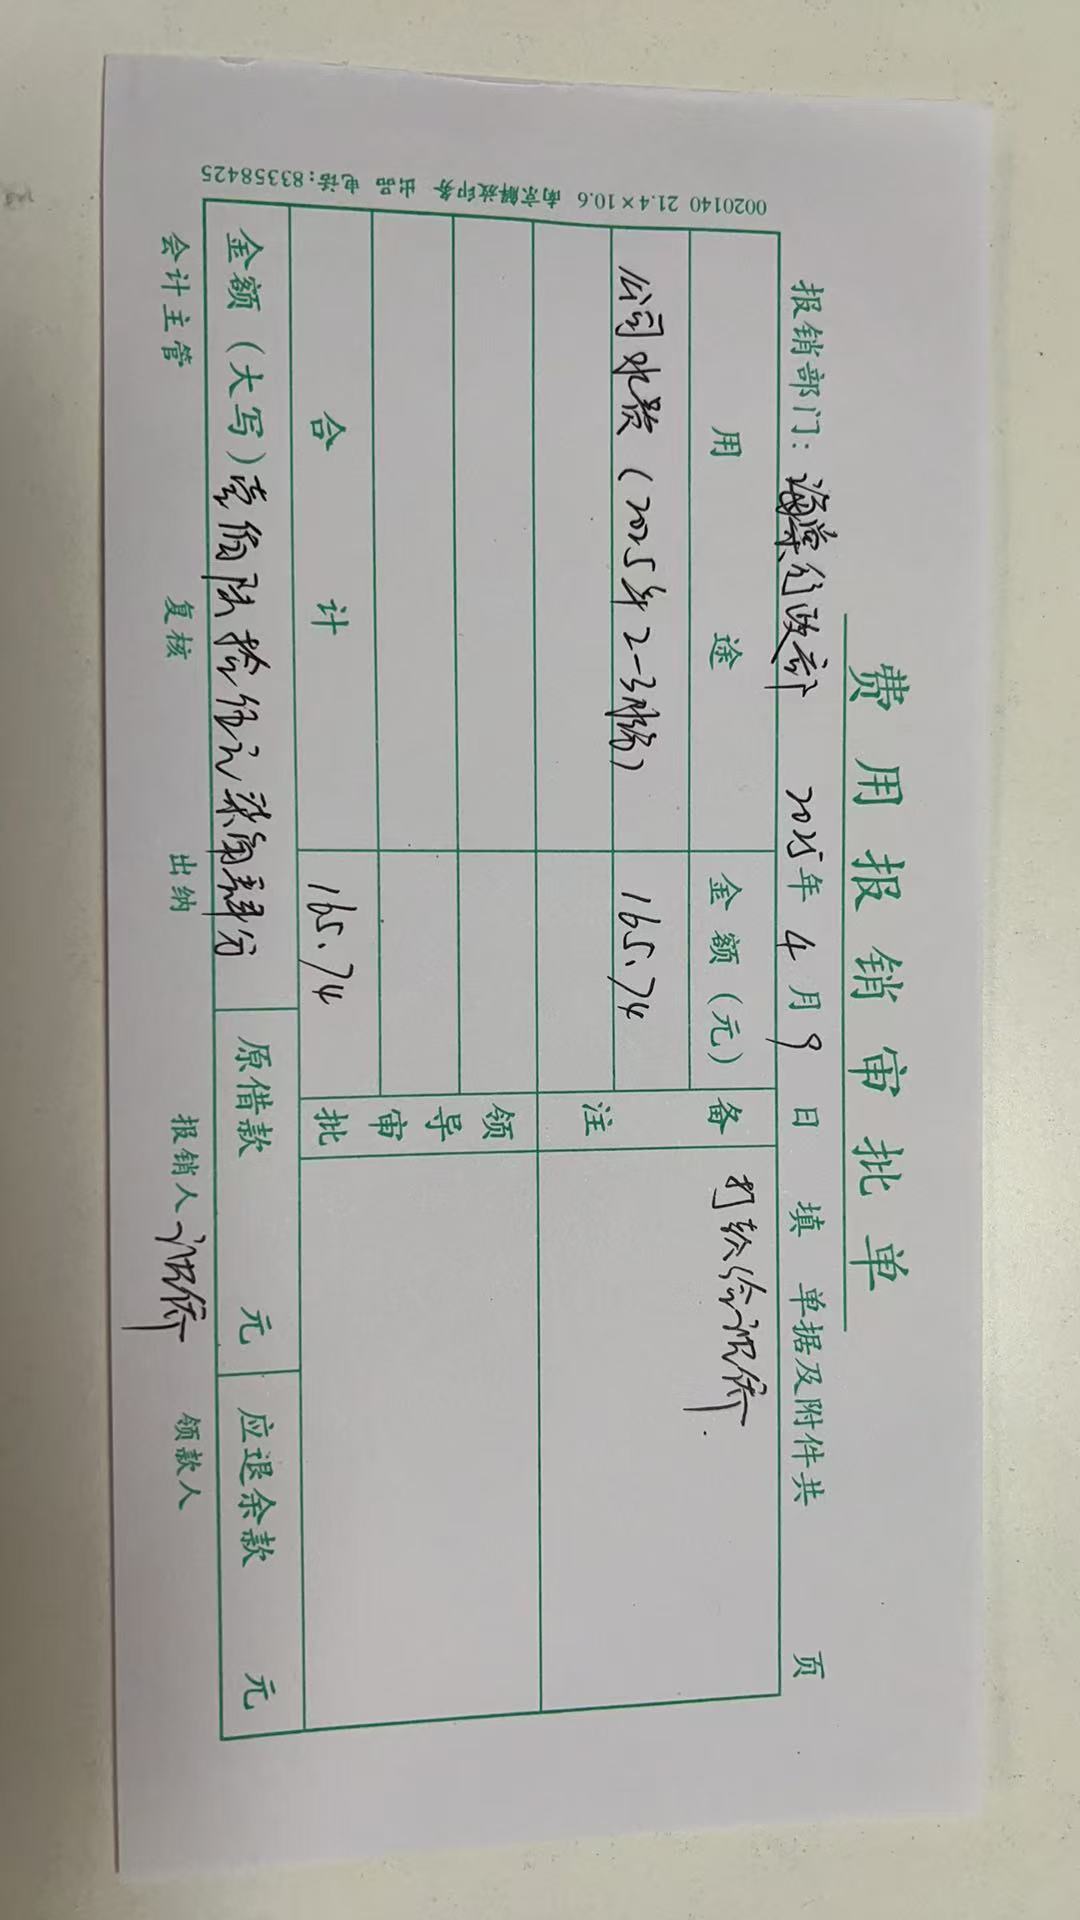 费用报销审批单
报销部门：海棠行政部 2025年4月9日填 单据及附件共 页
用途 金额（元） 备注 打款给
公司水费（2025年2-3月份） 165.74
领导审批
合计 165.74
金额（大写）壹佰陆拾伍元柒角肆分 原借款 元 应退余款 元
会计主管 复核 出纳 报销人 领款人
0020140 21.4×10.6 南京解放印务 出品 电话：83358425